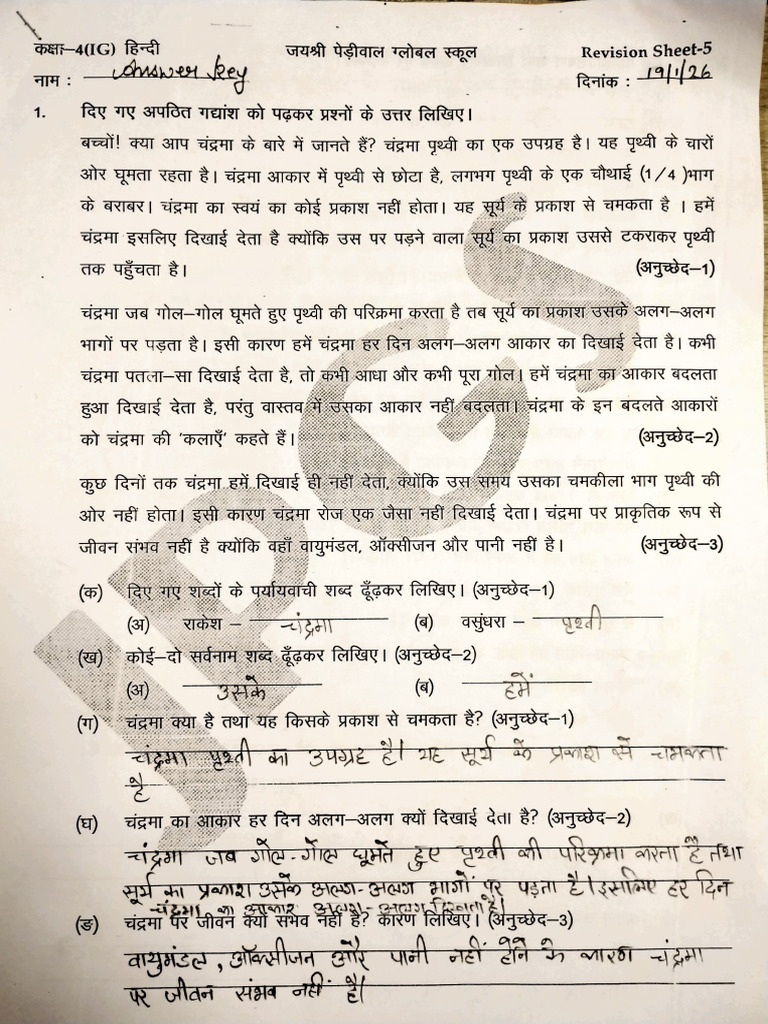 कक्षा–4(IG) हिन्दी जयश्री पेड़ीवाल ग्लोबल स्कूल Revision Sheet-5
नाम : Answer key दिनांक : 19/1/26
1. दिए गए अपठित गद्यांश को पढ़कर प्रश्नों के उत्तर लिखिए।
बच्चों! क्या आप चंद्रमा के बारे में जानते हैं? चंद्रमा पृथ्वी का एक उपग्रह है। यह पृथ्वी के चारों
ओर घूमता रहता है। चंद्रमा आकार में पृथ्वी से छोटा है, लगभग पृथ्वी के एक चौथाई (1/4 )भाग
के बराबर। चंद्रमा का स्वयं का कोई प्रकाश नहीं होता। यह सूर्य के प्रकाश से चमकता है । हमें
चंद्रमा इसलिए दिखाई देता है क्योंकि उस पर पड़ने वाला सूर्य का प्रकाश उससे टकराकर पृथ्वी
तक पहुँचता है। (अनुच्छेद–1)
चंद्रमा जब गोल–गोल घूमते हुए पृथ्वी की परिक्रमा करता है तब सूर्य का प्रकाश उसके अलग–अलग
भागों पर पड़ता है। इसी कारण हमें चंद्रमा हर दिन अलग–अलग आकार का दिखाई देता है। कभी
चंद्रमा पतला–सा दिखाई देता है, तो कभी आधा और कभी पूरा गोल। हमें चंद्रमा का आकार बदलता
हुआ दिखाई देता है, परंतु वास्तव में उसका आकार नहीं बदलता। चंद्रमा के इन बदलते आकारों
को चंद्रमा की 'कलाएँ' कहते हैं। (अनुच्छेद–2)
कुछ दिनों तक चंद्रमा हमें दिखाई ही नहीं देता, क्योंकि उस समय उसका चमकीला भाग पृथ्वी की
ओर नहीं होता। इसी कारण चंद्रमा रोज एक जैसा नहीं दिखाई देता। चंद्रमा पर प्राकृतिक रूप से
जीवन संभव नहीं है क्योंकि वहाँ वायुमंडल, ऑक्सीजन और पानी नहीं है। (अनुच्छेद–3)
(क) दिए गए शब्दों के पर्यायवाची शब्द ढूँढ़कर लिखिए। (अनुच्छेद–1)
(अ) राकेश – चंद्रमा (ब) वसुंधरा – पृथ्वी
(ख) कोई–दो सर्वनाम शब्द ढूँढ़कर लिखिए। (अनुच्छेद–2)
(अ) उसके (ब) हमें
(ग) चंद्रमा क्या है तथा यह किसके प्रकाश से चमकता है? (अनुच्छेद–1)
चंद्रमा पृथ्वी का उपग्रह है। यह सूर्य के प्रकाश से चमकता
है
(घ) चंद्रमा का आकार हर दिन अलग–अलग क्यों दिखाई देता है? (अनुच्छेद–2)
चंद्रमा जब गोल-गोल घूमते हुए पृथ्वी की परिक्रमा करता है तथा
सूर्य का प्रकाश उसके अलग-अलग भागों पर पड़ता है। इसलिए हर दिन
चंद्रमा का आकार अलग-अलग दिखता है।
(ङ) चंद्रमा पर जीवन क्यों संभव नहीं है? कारण लिखिए। (अनुच्छेद–3)
वायुमंडल, ऑक्सीजन और पानी नहीं होने के कारण चंद्रमा
पर जीवन संभव नहीं है।
JPGS